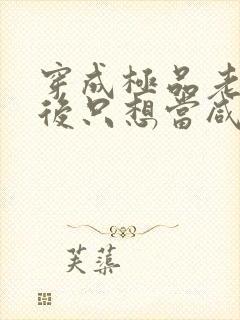 穿成極品老
後只想當咸
芙蕖